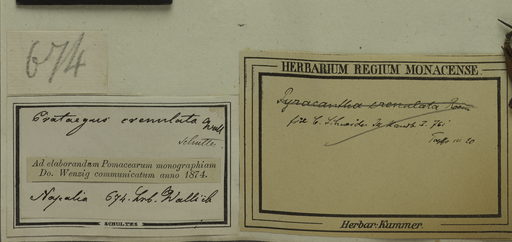 674
Crataegus crenulata Wall
Schultes
Ad elaborandam Pomacearum monographiam
Do. Wenzig communicatum anno 1874.
Napalia 674. hrb. Wallich
SCHULTES
HERBARIUM REGIUM MONACENSE.
Pyracantha crenulata Roem
fide C. Schneider Handb I. 761
Herbar: Kummer